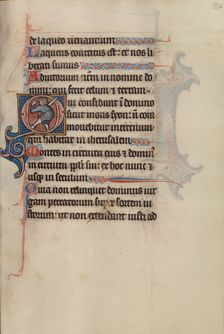 187
de laqueo venantium
Laqueus contritus est et nos li
berati sumus
Adiutorium nrm in nomine do
mini: qui fecit celum et terram
Qui confidunt in domino
sicut mons syon: non com
mouebitur in eternum
qui habitat in iherusalem
Montes in circuitu eius et domin'
in circuitu populi sui ex hoc nunc et
usque in seculum
Quia non relinquet dominus uir
gam peccatorum super sortem iu
storum: ut non extendant iusti ad